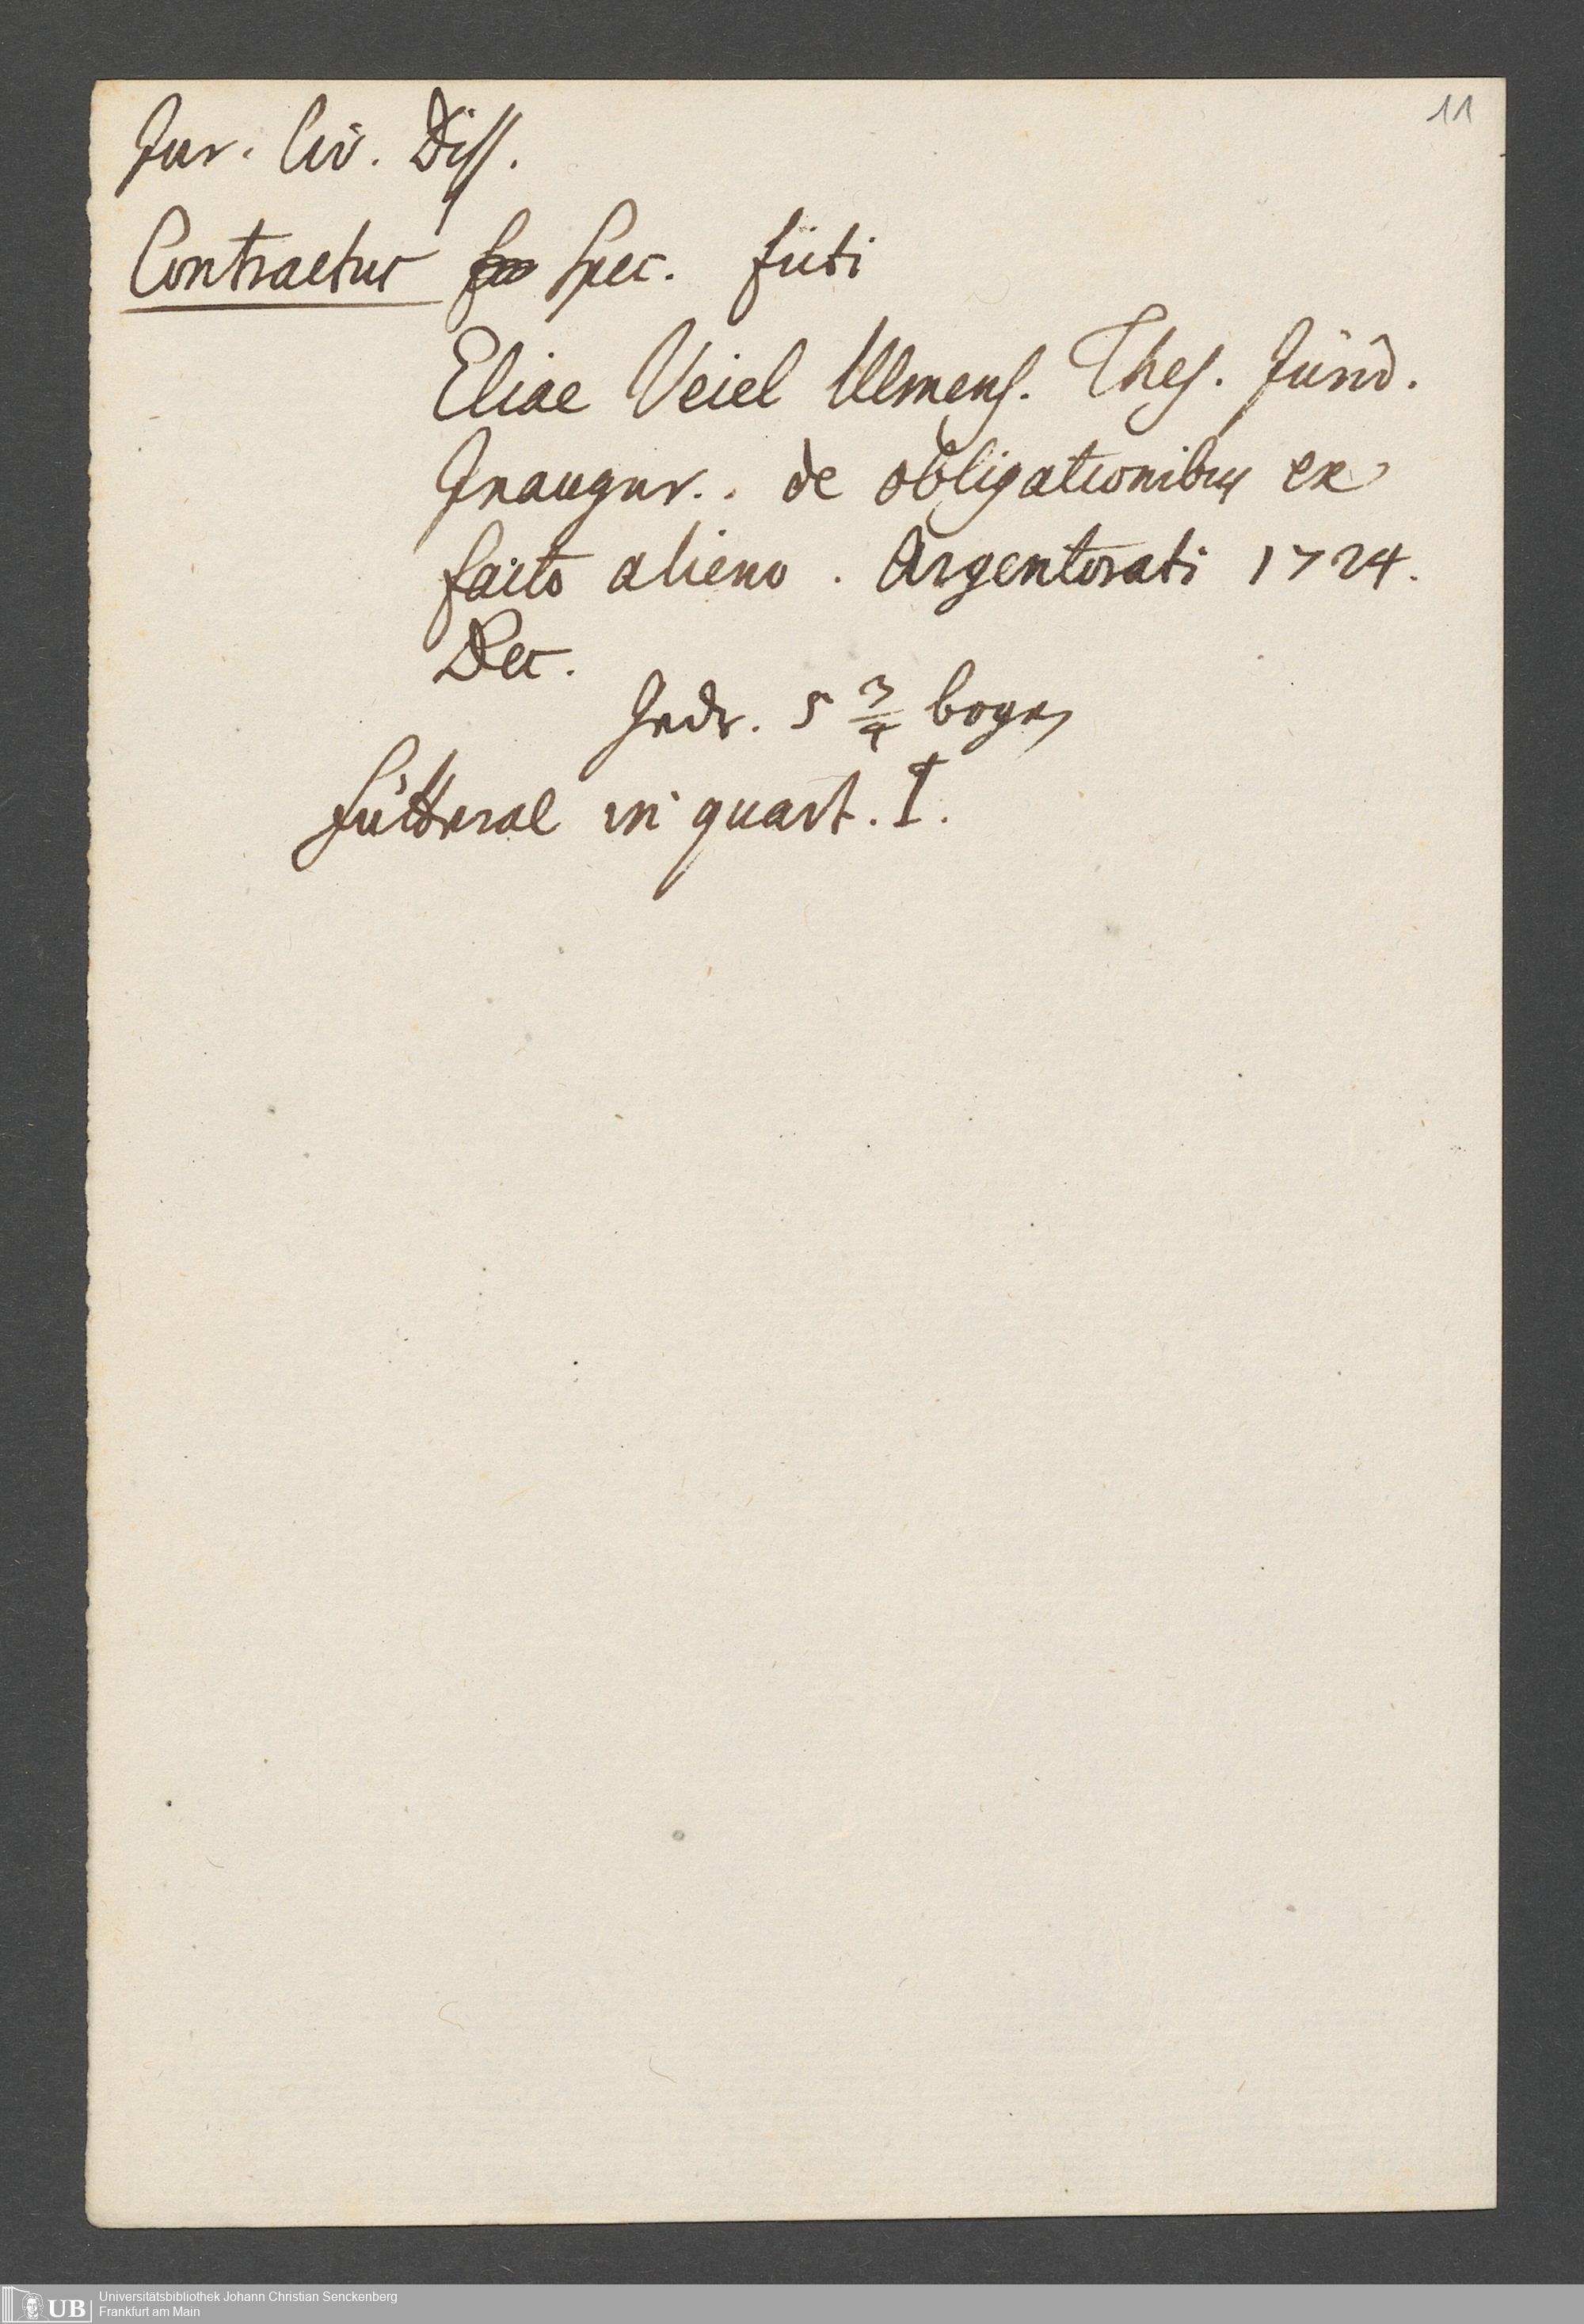 11
Jur. Civ. Diss.
Contractus Spec. ficti
Eliae Veiel Ulmens. Thes. Jurid.
Inaugur.. de obligationibus ex
facto alieno. Argentorati 1724.
Dec.
gedr. 5 3/4 bogen
Futteral in quart. I.
UB Universitätsbibliothek Johann Christian Senckenberg
Frankfurt am Main